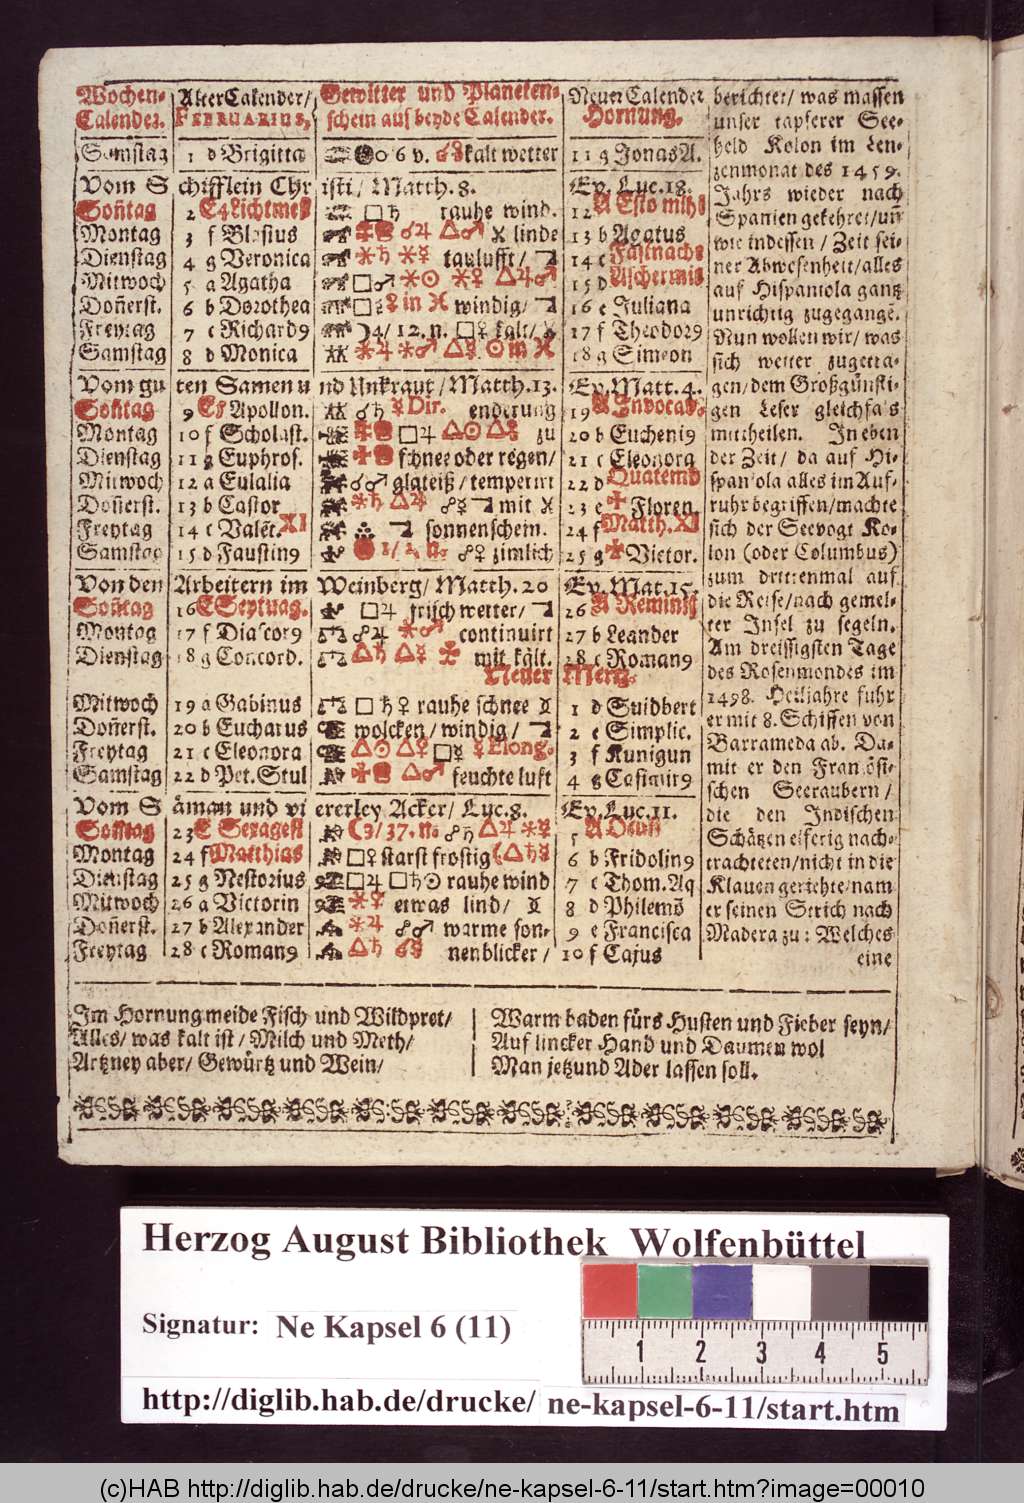 Wochen- Alter Calender/ Gewitter und Planeten- Neuer Calender
Calender. FEBRUARIUS, schein auf beyde Calender. Hornung.
Samstag 1 d Brigitta 6 v. ☌ kalt wetter 11 g Jonas A.
Vom Schifflein Christi/ Matth. 8. Ev. Luc. 18.
Sontag 2 E Lichtmeß □♄ rauhe wind. 12 A Esto mihi
Montag 3 f Blasius ☌♃ △♂ linde 13 b Agatus
Dienstag 4 g Veronica ⚹♄ ⚹☿ taulufft/ 14 c Fastnacht
Mittwoch 5 a Agatha □♂ ⚹☉ ⚹♀ △♃♂ 15 d Aschermit
Doñerst. 6 b Dorothea in ♓ windig/ 16 e Juliana
Freytag 7 c Richard9 4/ 12. n. □♀ kalt/ 17 f Theodor9
Samstag 8 d Monica ⚹♃ ⚹♂ △☿ ☉ in ♓ 18 g Simeon
Vom guten Samen und Unkraut/ Matth. 13. Ev. Matt. 4.
Sontag 9 E Apollon. ☌♄ ☿ Dir. enderung 19 A Invocav.
Montag 10 f Scholast. □♃ △☉ zu 20 b Eucheri9
Dienstag 11 g Euphros. schnee oder regen/ 21 c Eleonora
Mittwoch 12 a Eulalia ☌♂ glateiß/ temperirt 22 d Quatemb
Doñerst. 13 b Castor ⚹♄ △♃ ☍☿ mit 23 e Floren.
Freytag 14 c Valēt. XI sonnenschein. 24 f Matth. XI
Samstag 15 d Faustin9 ☍♀ zimlich 25 g Victor.
Von den Arbeitern im Weinberg/ Matth. 20 Ev. Mat. 15.
Sontag 16 E Septuag. □♃ frisch wetter/ 26 A Reminis
Montag 17 f Diacor9 ☍♃ ⚹♂ continuirt 27 b Leander
Dienstag 18 g Concord. △♄ △☿ mit kält. 28 c Roman9
Neuer Mertz.
Mittwoch 19 a Gabinus □♄♀ rauhe schnee 1 d Suidbert
Doñerst. 20 b Eucharus wolcken/ windig/ 2 e Simplic.
Freytag 21 c Eleonora △☉ △♀ □☿ ☿ Elong. 3 f Kunigun
Samstag 22 d Pet. Stul △♂ feuchte luft 4 g Casimir9
Vom Säman und viererley Acker/ Luc. 8. Ev. Luc. 11.
Sontag 23 E Sexages 3/ 37. n. ☍♄ △♃ ⚹☿ 5 A Oculi
Montag 24 f Matthias □♀ starst frostig 6 b Fridolin9
Dienstag 25 g Nestorius □♃ □♄☉ rauhe wind 7 c Thom. Aq
Mittwoch 26 a Victorin ⚹♀ etwas lind/ 8 d Philemō
Doñerst. 27 b Alexander ⚹♃ ☍♂ warme son- 9 e Francisca
Freytag 28 c Roman9 △♄ nenblicker/ 10 f Cajus
berichtet/ was massen
unser tapferer See-
held Kolon im Len-
zenmonat des 1459.
Jahrs wieder nach
Spanien gekehret/ uñ
wie indessen/ Zeit sei-
ner Abwesenheit/ alles
auf Hispaniola gantz
unrichtig zugegangē.
Nun wollen wir/ was
sich weiter zugetra-
gen/ dem Großgünsti-
gen Leser gleichfals
mittheilen. In eben
der Zeit/ da auf Hi-
spaniola alles im Auf-
ruhr begriffen/ machte
sich der Seevogt Ko-
lon (oder Columbus)
zum drittenmal auf
die Reise/ nach gemel-
ter Insel zu segeln.
Am dreissigsten Tage
des Rosenmondes im
1498. Heiljahre fuhr
er mit 8. Schiffen von
Barrameda ab. Da-
mit er den Französi-
schen Seeraubern/
die den Indischen
Schätzen eiferig nach-
trachteten/ nicht in die
Klauen geriehte/ nam
er seinen Strich nach
Madera zu: Welches
eine
Im Hornung meide Fisch und Wildpret/
Alles/ was kalt ist/ Milch und Meth/
Artzney aber/ Gewürtz und Wein/
Warm baden fürs Husten und Fieber seyn/
Auf lincker Hand und Daumen wol
Man jetzund Ader lassen soll.
Herzog August Bibliothek Wolfenbüttel
Signatur: Ne Kapsel 6 (11)
1 2 3 4 5
http://diglib.hab.de/drucke/ ne-kapsel-6-11/start.htm
(c)HAB http://diglib.hab.de/drucke/ne-kapsel-6-11/start.htm?image=00010